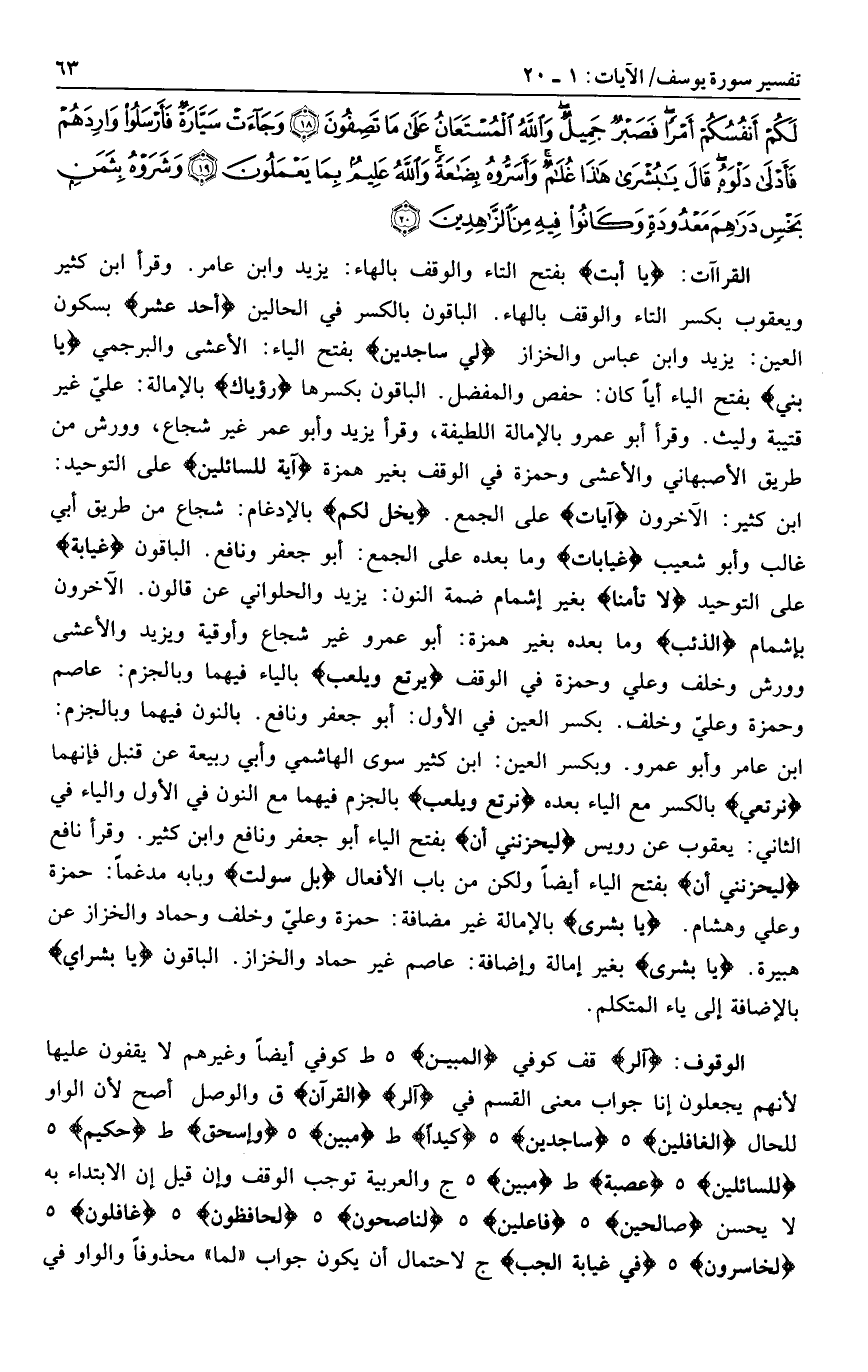 تفسير سورة يوسف/ الآيات: ١ - ٢٠
٦٣
لَكُمْ أَنفُسُكُمْ أَمْرًا فَصَبْرٌ جَمِيلٌ وَاللَّهُ الْمُسْتَعَانُ عَلَىٰ مَا تَصِفُونَ ﴿١٨﴾ وَجَآءَتْ سَيَّارَةٌ فَأَرْسَلُوا۟ وَارِدَهُمْ
فَأَدْلَىٰ دَلْوَهُۥ قَالَ يَـٰبُشْرَىٰ هَـٰذَا غُلَـٰمٌ وَأَسَرُّوهُ بِضَـٰعَةً وَاللَّهُ عَلِيمٌۢ بِمَا يَعْمَلُونَ ﴿١٩﴾ وَشَرَوْهُ بِثَمَنٍۭ
بَخْسٍ دَرَٰهِمَ مَعْدُودَةٍ وَكَانُوا۟ فِيهِ مِنَ ٱلزَّٰهِدِينَ ﴿٢٠﴾
القراآت: ﴿يا أبت﴾ بفتح التاء والوقف بالهاء: يزيد وابن عامر. وقرأ ابن كثير
ويعقوب بكسر التاء والوقف بالهاء. الباقون بالكسر في الحالين ﴿أحد عشر﴾ بسكون
العين: يزيد وابن عباس والخزاز ﴿لي ساجدين﴾ بفتح الياء: الأعشى والبرجمي ﴿يا
بني﴾ بفتح الياء أياً كان: حفص والمفضل. الباقون بكسرها ﴿رؤياك﴾ بالإمالة: عليّ غير
قتيبة وليث. وقرأ أبو عمرو بالإمالة اللطيفة، وقرأ يزيد وأبو عمر غير شجاع، وورش من
طريق الأصبهاني والأعشى وحمزة في الوقف بغير همزة ﴿آية للسائلين﴾ على التوحيد:
ابن كثير: الآخرون ﴿آيات﴾ على الجمع. ﴿يخل لكم﴾ بالإدغام: شجاع من طريق أبي
غالب وأبو شعيب ﴿غيابات﴾ وما بعده على الجمع: أبو جعفر ونافع. الباقون ﴿غيابة﴾
على التوحيد ﴿لا تأمنا﴾ بغير إشمام ضمة النون: يزيد والحلواني عن قالون. الآخرون
بإشمام ﴿الذئب﴾ وما بعده بغير همزة: أبو عمرو غير شجاع وأوقية ويزيد والأعشى
وورش وخلف وعلي وحمزة في الوقف ﴿يرتع ويلعب﴾ بالياء فيهما وبالجزم: عاصم
وحمزة وعليّ وخلف. بكسر العين في الأول: أبو جعفر ونافع. بالنون فيهما وبالجزم:
ابن عامر وأبو عمرو. وبكسر العين: ابن كثير سوى الهاشمي وأبي ربيعة عن قنبل فإنهما
﴿نرتعي﴾ بالكسر مع الياء بعده ﴿نرتع ويلعب﴾ بالجزم فيهما مع النون في الأول والياء في
الثاني: يعقوب عن رويس ﴿ليحزنني أن﴾ بفتح الياء أبو جعفر ونافع وابن كثير. وقرأ نافع
﴿ليحزنني أن﴾ بفتح الياء أيضاً ولكن من باب الأفعال ﴿بل سولت﴾ وبابه مدغماً: حمزة
وعلي وهشام. ﴿يا بشرى﴾ بالإمالة غير مضافة: حمزة وعليّ وخلف وحماد والخزاز عن
هبيرة. ﴿يا بشرى﴾ بغير إمالة وإضافة: عاصم غير حماد والخزاز. الباقون ﴿يا بشراي﴾
بالإضافة إلى ياء المتكلم.
الوقوف: ﴿آلر﴾ قف كوفي ﴿المبين﴾ ٥ ط كوفي أيضاً وغيرهم لا يقفون عليها
لأنهم يجعلون إنا جواب معنى القسم في ﴿آلر﴾ ﴿القرآن﴾ ق والوصل أصح لأن الواو
للحال ﴿الغافلين﴾ ٥ ﴿ساجدين﴾ ٥ ﴿كيداً﴾ ط ﴿مبين﴾ ٥ ﴿وإسحق﴾ ط ﴿حكيم﴾ ٥
﴿للسائلين﴾ ٥ ﴿عصبة﴾ ط ﴿مبين﴾ ٥ ج والعربية توجب الوقف وإن قيل إن الابتداء به
لا يحسن ﴿صالحين﴾ ٥ ﴿فاعلين﴾ ٥ ﴿لناصحون﴾ ٥ ﴿لحافظون﴾ ٥ ﴿غافلون﴾ ٥
﴿لخاسرون﴾ ٥ ﴿في غيابة الجب﴾ ج لاحتمال أن يكون جواب «لما» محذوفاً والواو في